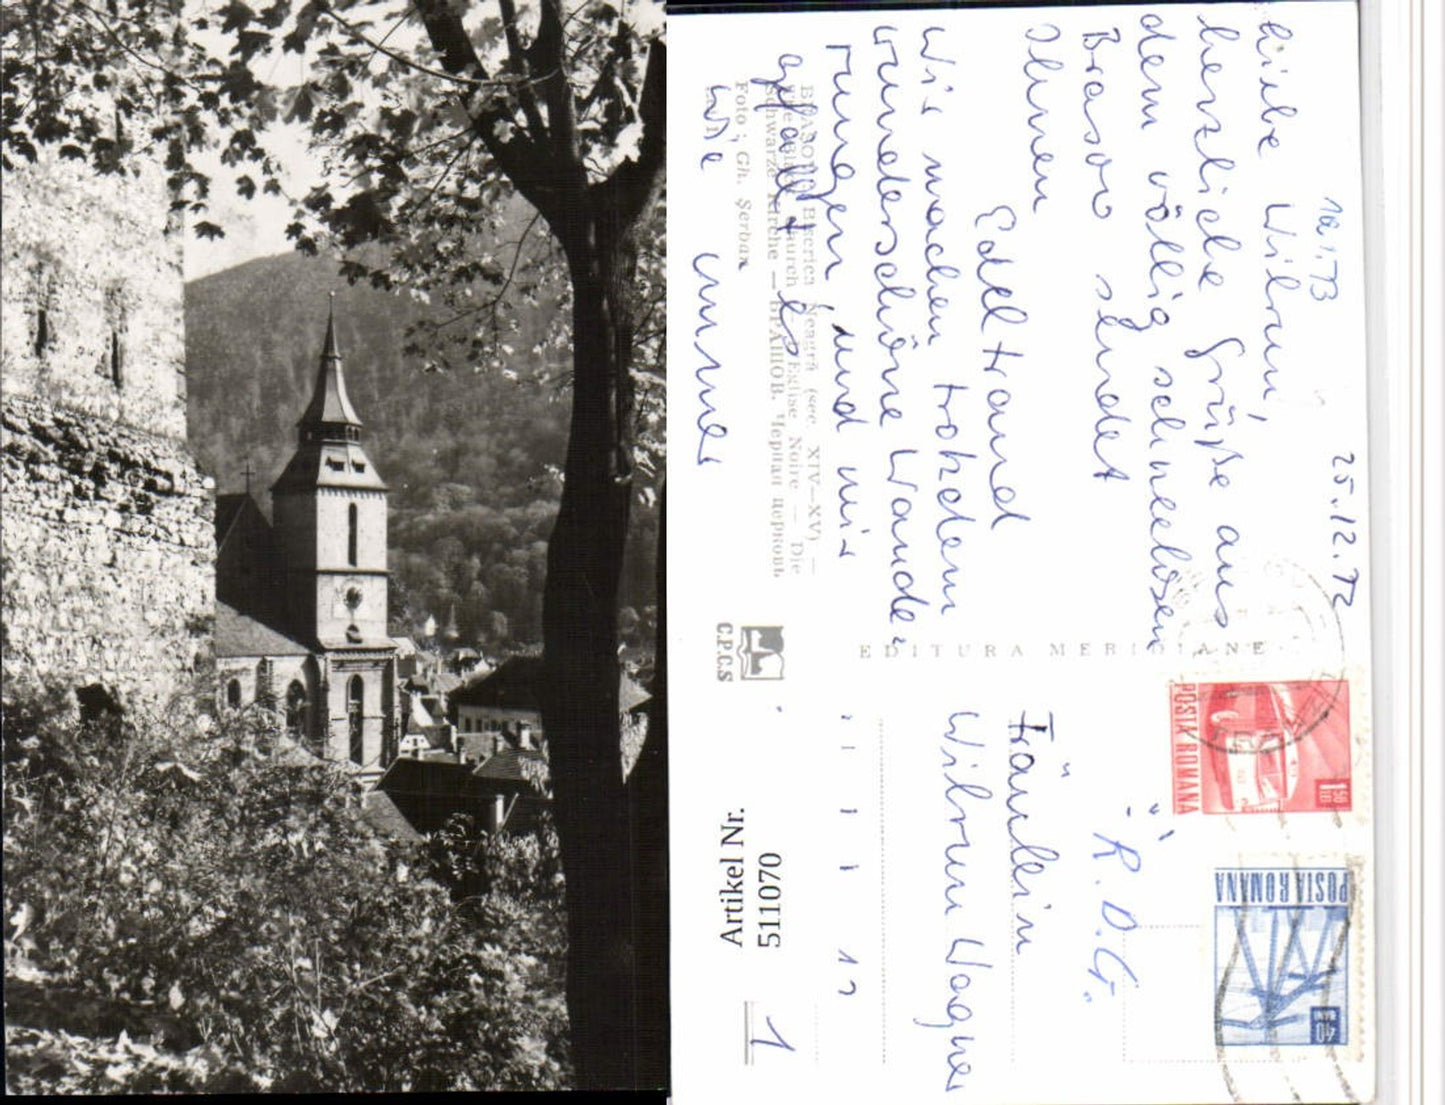 10.1.73
25.12.72
Liebe Wiltrun,
herzliche Grüße aus
dem völlig schneelosen
Brasov sendet
Ihnen
Edeltraud
Wir machen trotzdem
wunderschöne Wande-
rungen und mir
gefällt es
wie immer
BRAȘOV. Biserica Neagră (sec. XIV—XV) —
The Black Church — L'Eglise Noire — Die
Schwarze Kirche — БРАШОВ. Черная церковь
Foto: Gh. Șerban
C.P.C.S
EDITURA MERIDIANE
POSTA ROMANA
1 50 LEI
POSTA ROMANA
40 BANI
"R.D.G."
Fräulein
Wiltrun Wagner
Artikel Nr.
511070
1